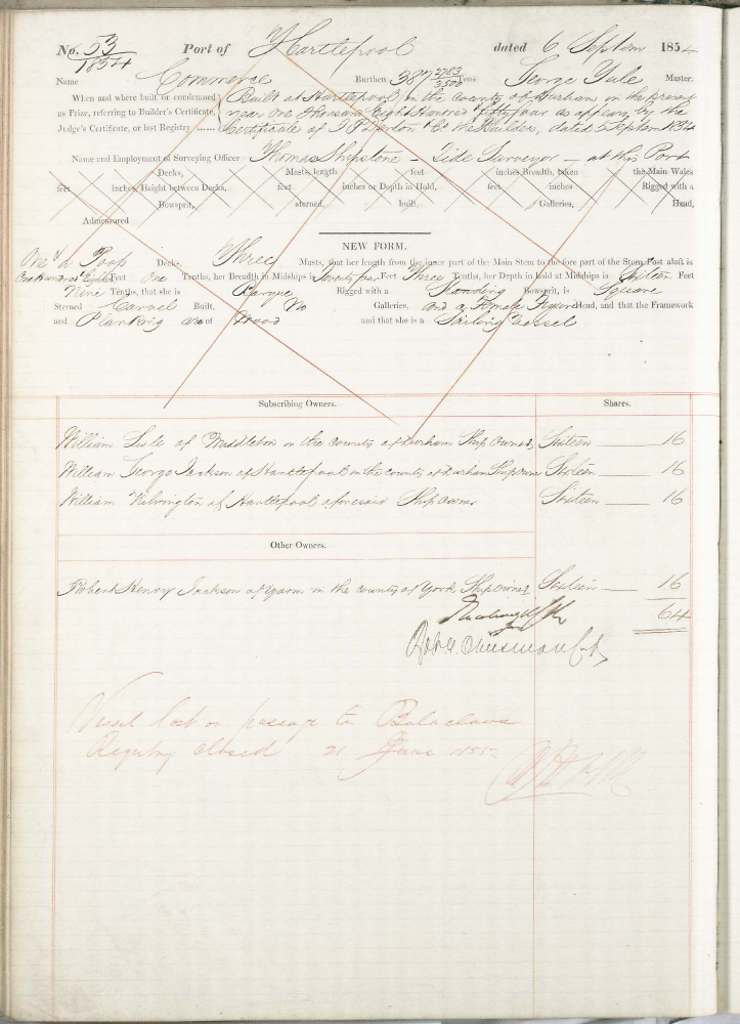 No. 53/1854 Port of Hartlepool dated 6 Septem 1854
Name Commerce Burthen 387 2783/3500 Tons George Yule Master.
When and where built or condemned as Prize, referring to Builder's Certificate, Judge's Certificate, or last Registry
Built at Hartlepool in the County of Durham in the present
year One Thousand Eight Hundred & fifty four as appears by the
Certificate of Co the Builders, dated 5 Septem 1854
Name and Employment of Surveying Officer Thomas Shepstone - Tide Surveyor - at this Port
Decks, Masts, length feet inches, Breadth, taken the Main Wales
feet inches, Height between Decks, feet inches or Depth in Hold, feet inches Rigged with a
Bowsprit, sterned, built, Galleries, Head,
Admeasured
NEW FORM.
One & a Poop Decks, Three Masts, that her length from the inner part of the Main Stem to the fore part of the Stern Post aloft is
One Hundred & Eight Feet One Tenths, her Breadth in Midships is Twenty four Feet Three Tenths, her Depth in hold at Midships is Sixteen Feet
Nine Tenths, that she is Barque Rigged with a Standing Bowsprit, is Square
Sterned Carvel Built, No Galleries, and a Female Figure Head, and that the Framework
and Planking are of Wood and that she is a Sailing Vessel
Subscribing Owners. Shares.
William Lisle of Middleton in the County of Durham Ship Owner, Sixteen 16
William George Jackson of Hartlepool in the County of Durham Ship Owner Sixteen 16
William of Hartlepool aforesaid Ship Owner Sixteen 16
Other Owners.
Robert Henry Jackson of Yarm in the County of York Ship Owner, Sixteen 16
64
Vessel lost on passage to Balaclava
Registry closed 21 June